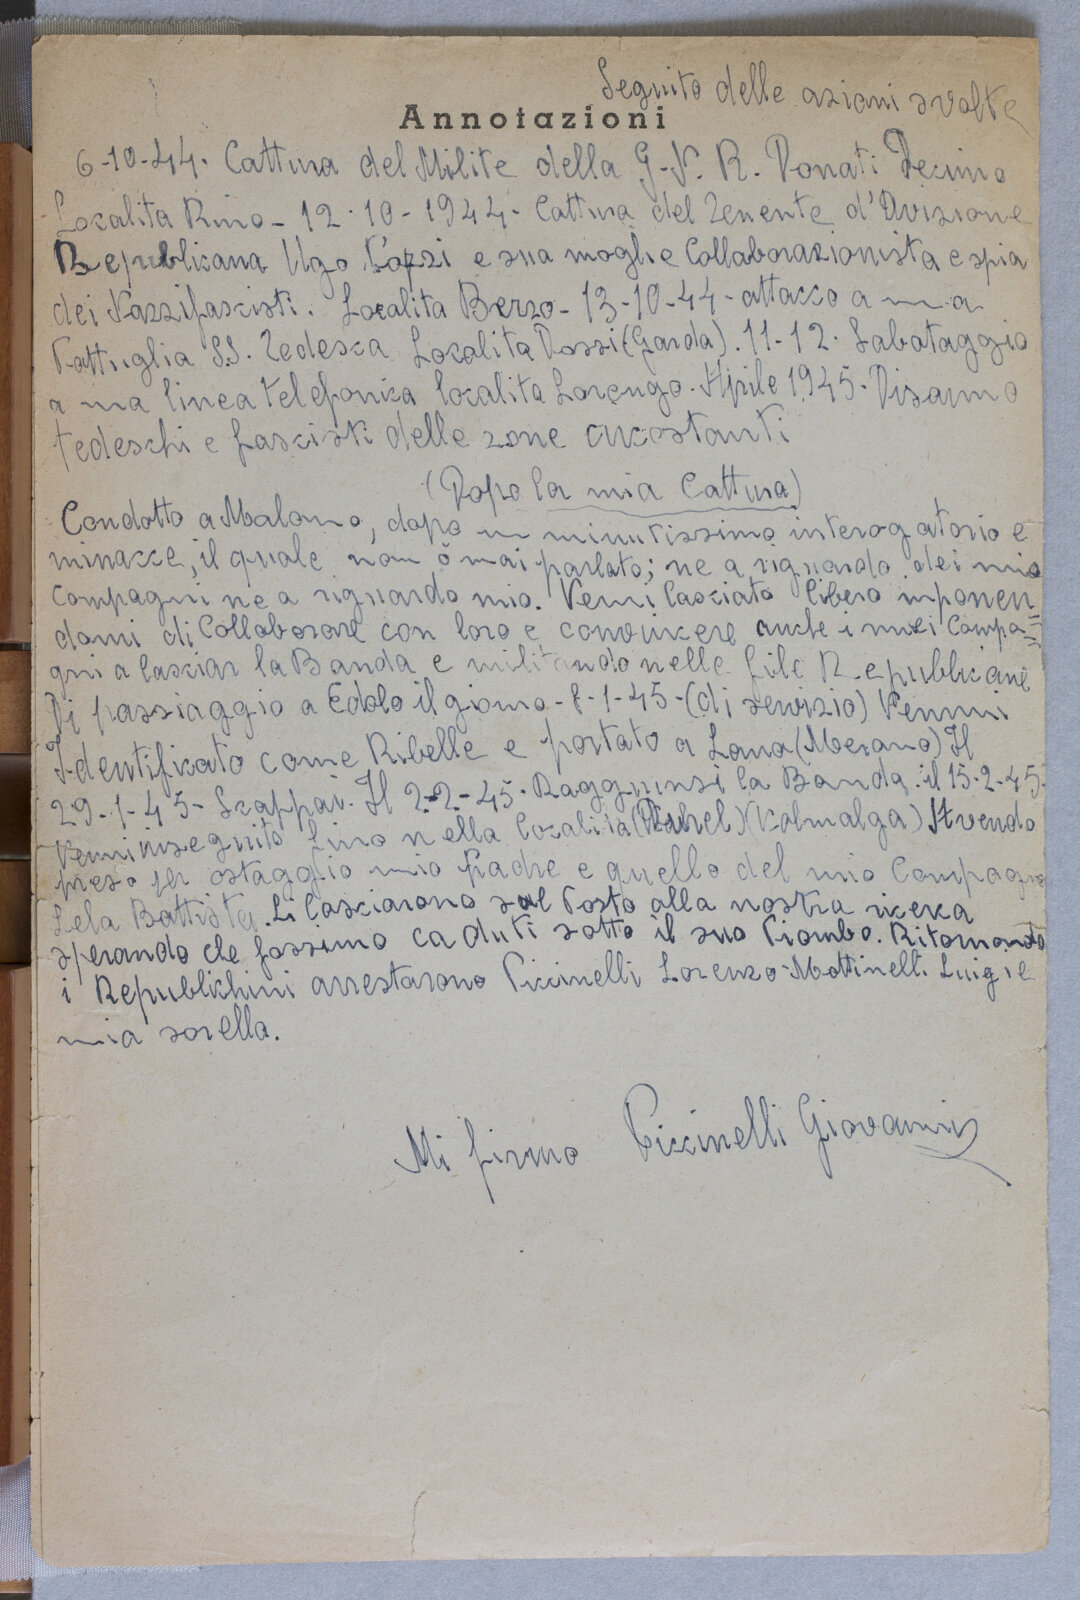 Seguito delle azioni svolte
Annotazioni
6-10-44. Cattura del Milite della G.N.R. Donati Decimo
Localita Rino - 12-10-1944- Cattura del Tenente d'Divisione
Republicana Ugo Pozzi e sua moglie Collaborazionista e spia
dei Nazzifascisti. Localita Berzo - 13-10-44- attacco a una
Pattuglia S.S. Tedesca Localita Dossi (Garda). 11-12. Sabotaggio
a una linea telefonica localita Lorengo. Aprile 1945. Disarmo
tedeschi e fascisti delle zone circostanti
(Dopo la mia Cattura)
Condotto a Malonno, dopo un minutissimo interogatorio e
minacce, il quale non ò mai parlato; ne a riguardo dei mio
compagni ne a riguardo mio. Venni lasciato libero inponen=
domi di Collaborare con loro e convincere anche i miei Compa=
gni a lasciar la Banda e militando nelle file Republicane
Di passiaggio a Edolo il giorno - 8-1-45-(di servizio) Venni
Identificato come Ribelle e portato a Lana (Merano) Il
29-1-45- Scappai. Il 2-2-45. Raggiunsi la Banda. il 15-2-45.
Venni inseguito fino nella localita (Valmalga) Avendo
preso per ostaggio mio Padre e quello del mio Compagno
Lela Battista. Li lasciarono sul Posto alla nostra ricerca
sperando che fossimo caduti sotto il suo Piombo. Ritornando
i Republichini arrestarono Piccinelli Lorenzo-Mottinelli Luigi e
mia sorella.
Mi firmo Piccinelli Giovanni